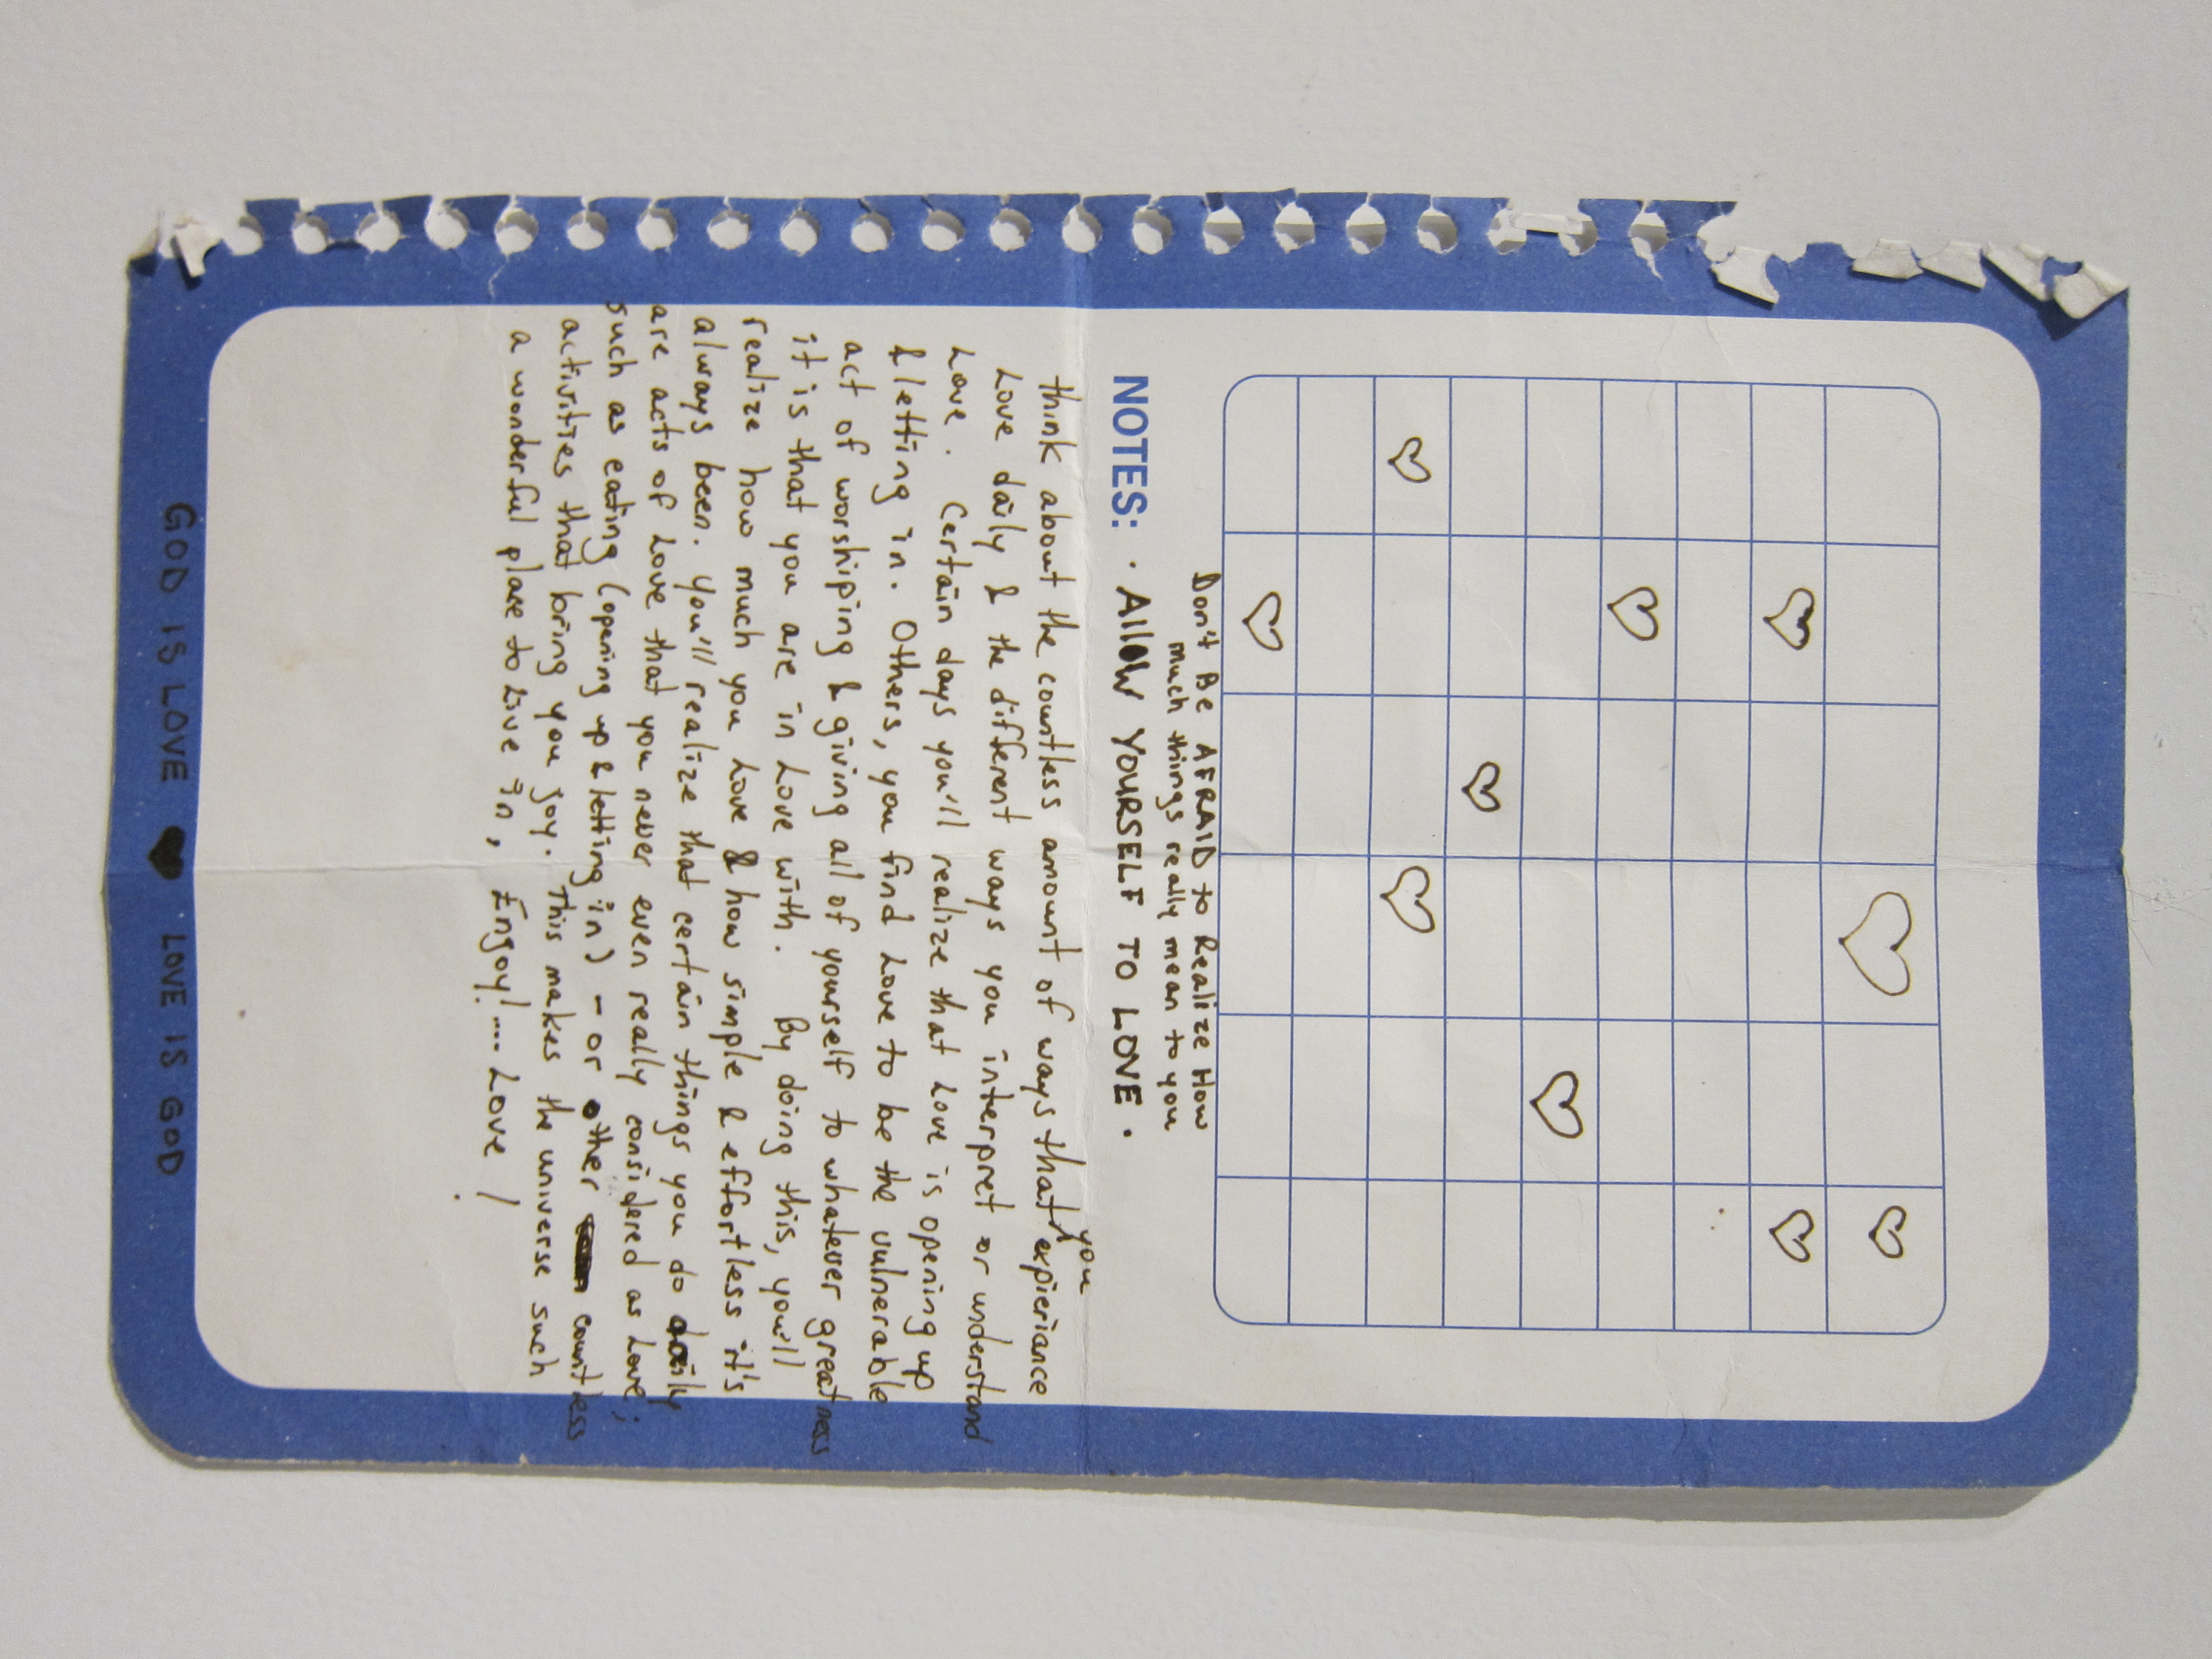 Don't Be AFRAID to Realize How
much things really mean to you
NOTES: · AllOW YOURSELF TO LOVE ·
you
think about the countless amount of ways that expieriance
Love daily & the different ways you interpret or understand
Love. Certain days you'll realize that Love is opening up
& letting in. Others, you find Love to be the vulnerable
act of worshiping & giving all of yourself to whatever greatness
it is that you are in Love with. By doing this, you'll
realize how much you Love & how simple & effortless it's
always been. You'll realize that certain things you do daily
are acts of Love that you never even really considered as Love;
such as eating (opening up & letting in) - or other countless
activities that bring you joy. This makes the universe such
a wonderful place to Live in, Enjoy!.... Love !
GOD IS LOVE ♥ LOVE IS GOD